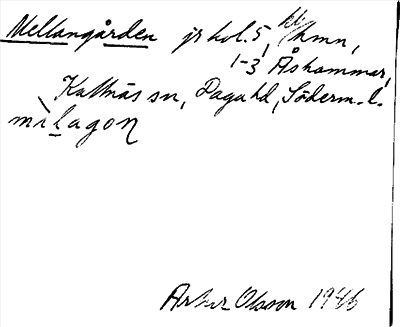 Mellangården jr kol. 5, kv/hmn,
1-3 Åshammar,
Kattnäs sn, Daga hd, Söderm. l.
mìlagon
Artur Olsson 1946